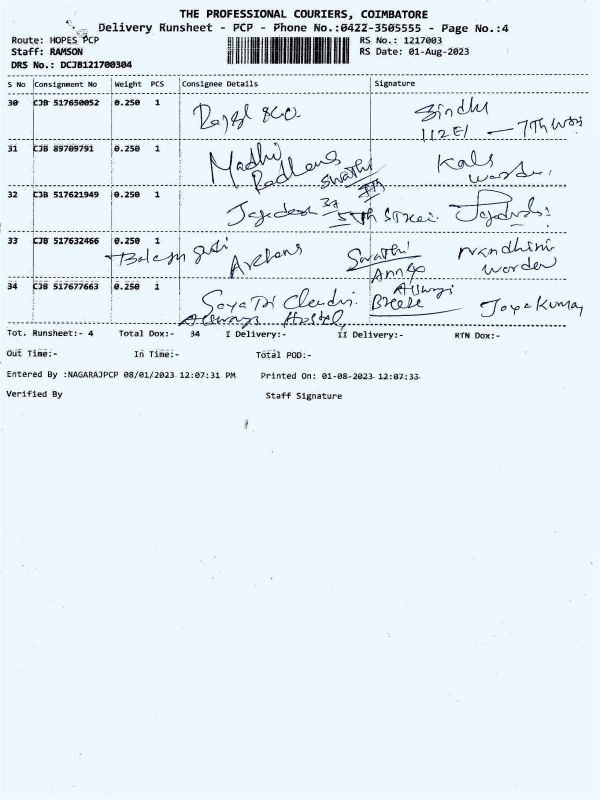 THE PROFESSIONAL COURIERS, COIMBATORE
Delivery Runsheet - PCP - Phone No.:0422-3505555 - Page No.:4
Route: HOPES PCP RS No.: 1217003
Staff: RAMSON RS Date: 01-Aug-2023
DRS No.: DCJB121700304
S No Consignment No Weight PCS Consignee Details Signature
30 CJB 517650052 0.250 1 Sindhu
112E1 - 7Th
31 CJB 89709791 0.250 1 Madhi Swathi Kala
32 CJB 517621949 0.250 1 Jagadesh 37
33 CJB 517632466 0.250 1 Archana Swathi Nandhini
Annex warden
34 CJB 517677663 0.250 1 Jaya Kumar
Hostel
Tot. Runsheet:- 4 Total Dox:- 34 I Delivery:- II Delivery:- RTN Dox:-
Out Time:- In Time:- Total POD:-
Entered By :NAGARAJPCP 08/01/2023 12:07:31 PM Printed On: 01-08-2023 12:07:33
Verified By Staff Signature